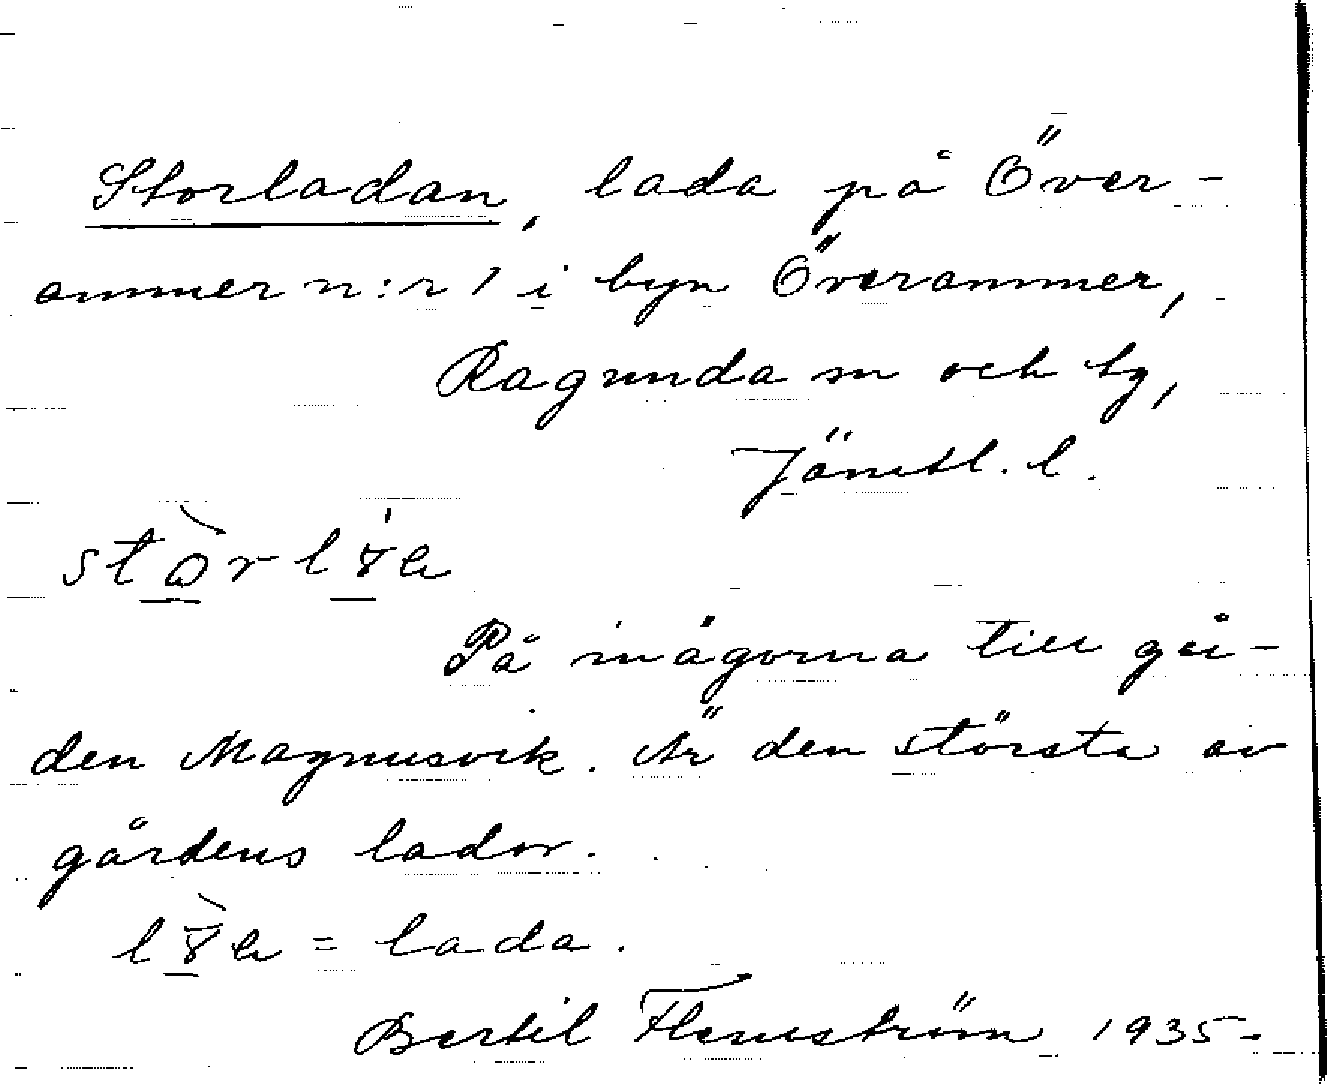 Storladan, lada på Över-
ammer n:r 1 i byn Överammer,
Ragunda sn och tg,
Jämtl. l.
På inägorna till går-
den Magnusvik. Är den största av
gårdens lador.
= lada.
Bertil Flemström 1935